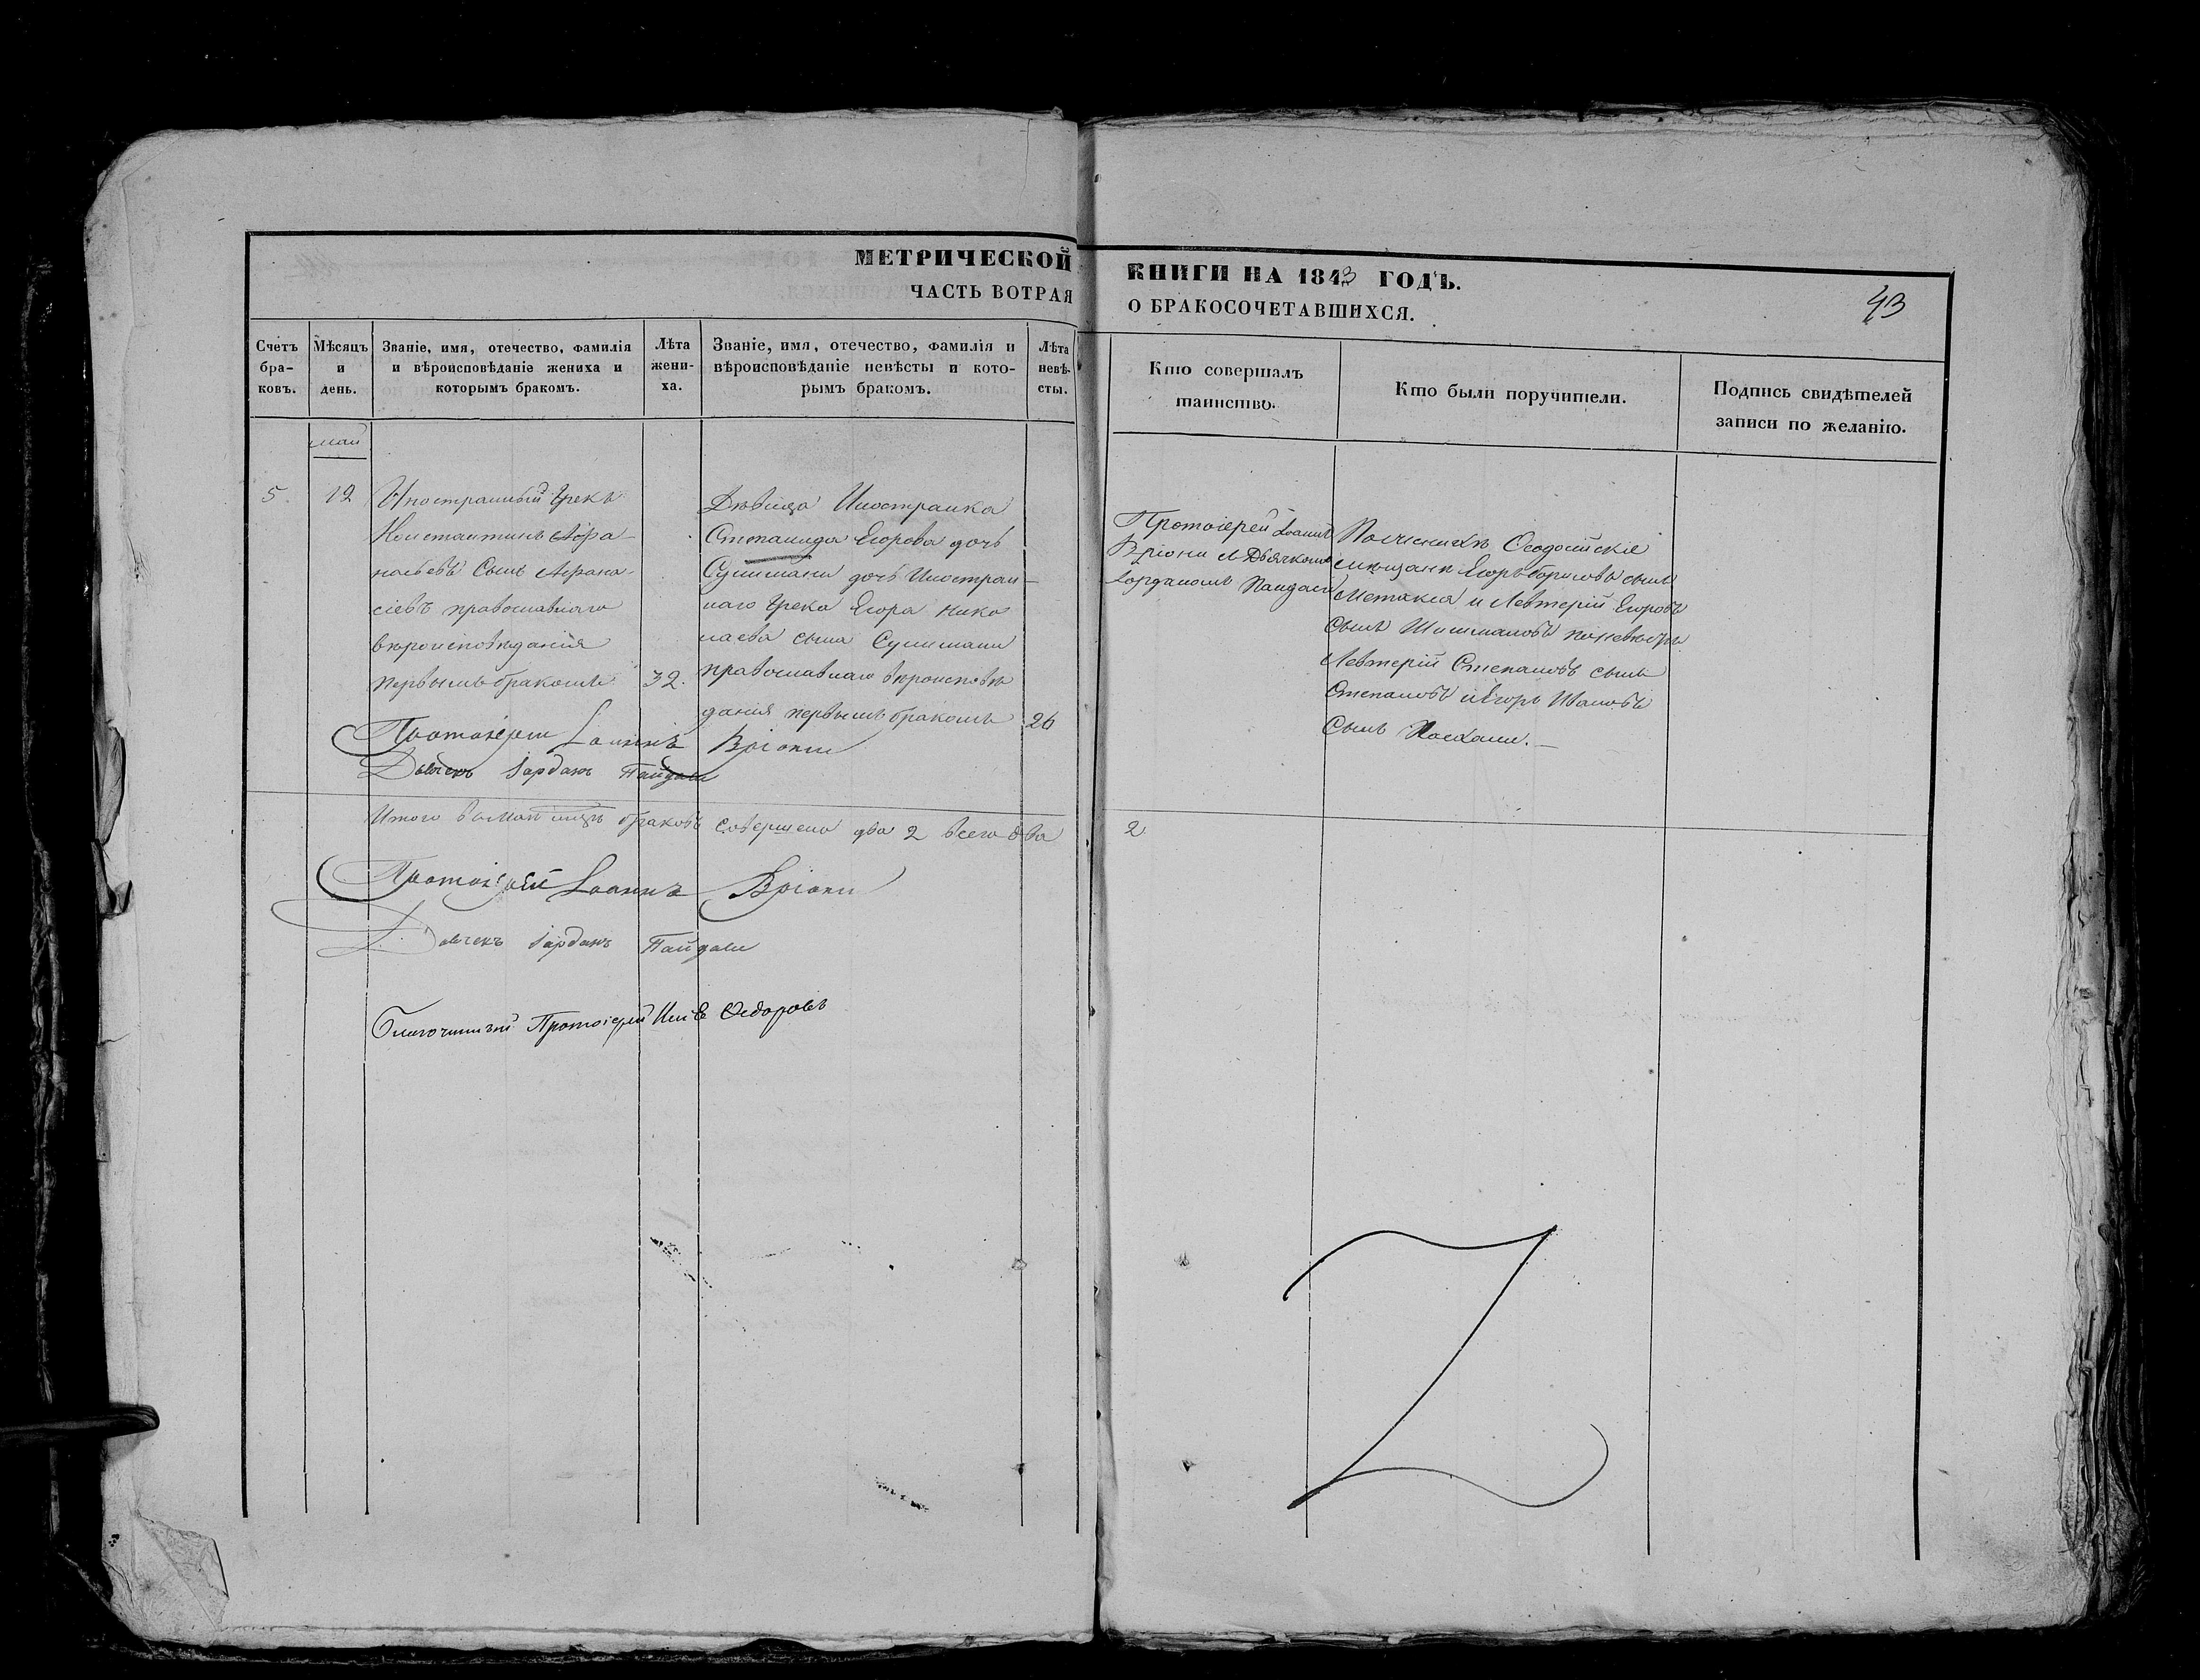 МЕТРИЧЕСКОЙ КНИГИ НА 1843 ГОДЪ.
ЧАСТЬ ВОТРАЯ О БРАКОСОЧЕТАВШИХСЯ.
43
Счетъ бра- ковъ.
Мѣсяцъ и день.
Званіе, имя, отечество, фамилія и вѣроисповѣданіе жениха и которымъ бракомъ.
Лѣта жени- ха.
Званіе, имя, отечество, фамилія и вѣроисповѣданіе невѣсты и кото- рымъ бракомъ.
Лѣта невѣ- сты.
Кто совершалъ таинство.
Кто были поручители.
Подпись свидѣтелей записи по желанію.
май
5. 12
Иностранный Грекъ
Константинъ Афа-
насьевъ Сынъ Афана-
сіевъ православнаго
вѣроисповѣданія
первымъ бракомъ
32.
Дѣвица Иностранка
Степанида Егорова дочь
дочь Иностран-
наго Грека Егора Нико
лаева сына
православнаго вѣроисповѣ
данія первымъ бракомъ
26
Протоіерей Іоаннъ
Вріони и Дьячкомъ
Іорданомъ
По женихѣ Ѳеодосійскіе
мѣщане Егоръ Борисовъ сынъ
Метакса и Левтерій Егоровъ
Сынъ Шишмановъ по невѣстѣ
Левтерій Степановъ сынъ
Степановъ и Егоръ Ивановъ
Сынъ
Протоіерей Іоаннъ Вріони
Дьячекъ Іорданъ Пандали
Итого въ май мцѣ браковъ совершено два 2 всего два 2
Протоіерей Іоаннъ Вріони
Дьячекъ Іорданъ Пандали
Благочинный Протоіерей Ѳедоровъ